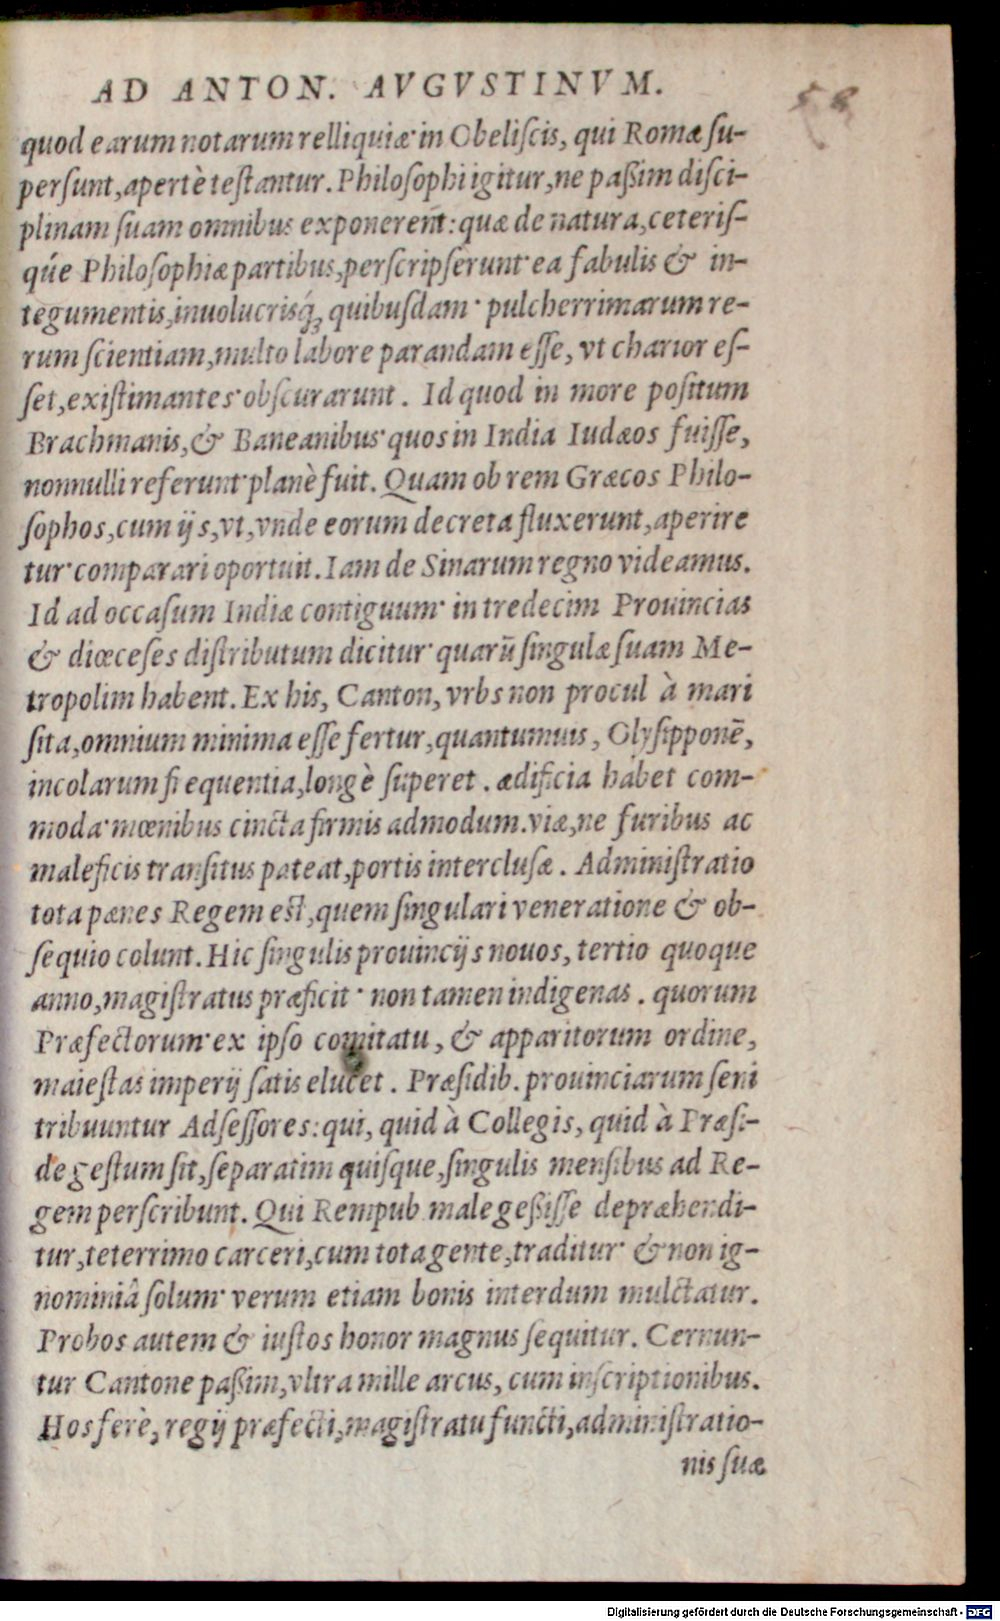 AD ANTON. AVGVSTINVM.
58
quod earum notarum relliquiæ· in Obeliſcis, qui Romæ ſu-
perſunt, apertè teſtantur. Philoſophi igitur, ne paßim diſci-
plinam ſuam omnibus exponerent: quæ de natura, ceteriſ-
qúe Philoſophiæ partibus, perſcripſerunt· ea fabulis & in-
tegumentis, inuolucrisq́ꝫ quibuſdam· pulcherrimarum re-
rum ſcientiam, multo labore parandam eſſe, vt charior eſ-
ſet, exiſtimantes· obſcurarunt. Id quod in more poſitum
Brachmanis, & Baneanibus· quos in India Iudæos fuiſſe,
nonnulli referunt· planè fuit. Quam ob rem Græcos Philo-
ſophos, cum ijs, vt, vnde eorum decreta fluxerunt, aperire
tur· comparari oportuit. Iam de Sinarum regno videamus.
Id ad occaſum Indiæ contiguum· in tredecim Prouincias
& diœceſes diſtributum dicitur· quarū ſingulæ ſuam Me-
tropolim habent. Ex his, Canton, vrbs non procul à mari
ſita, omnium minima eſſe fertur, quantumuis, Olyſipponē,
incolarum frequentia, longè ſuperet. ædificia habet com-
moda· mœnibus cincta firmis admodum. viæ, ne furibus ac
maleficis tranſitus pateat, portis intercluſæ. Adminiſtratio
tota pænes Regem eſt, quem ſingulari veneratione & ob-
ſequio colunt. Hic ſingulis prouincijs nouos, tertio quoque
anno, magiſtratus præficit· non tamen indigenas. quorum
Præfectorum· ex ipſo comitatu, & apparitorum ordine,
maieſtas imperij ſatis elucet. Præſidib. prouinciarum ſeni
tribuuntur Adſeſſores: qui, quid à Collegis, quid à Præſi-
de geſtum ſit, ſeparatim quiſque, ſingulis menſibus ad Re-
gem perſcribunt. Qui Rempub. male geßiſſe depræhendi-
tur, teterrimo carceri, cum tota gente, traditur· & non ig-
nominiâ ſolum· verum etiam bonis interdum mulctatur.
Probos autem & iuſtos honor magnus ſequitur. Cernun-
tur Cantone paßim, vltra mille arcus, cum inſcriptionibus.
Hos ferè, regij præfecti, magiſtratu functi, adminiſtratio-
nis ſuæ
Digitalisierung gefördert durch die Deutsche Forschungsgemeinschaft - DFG